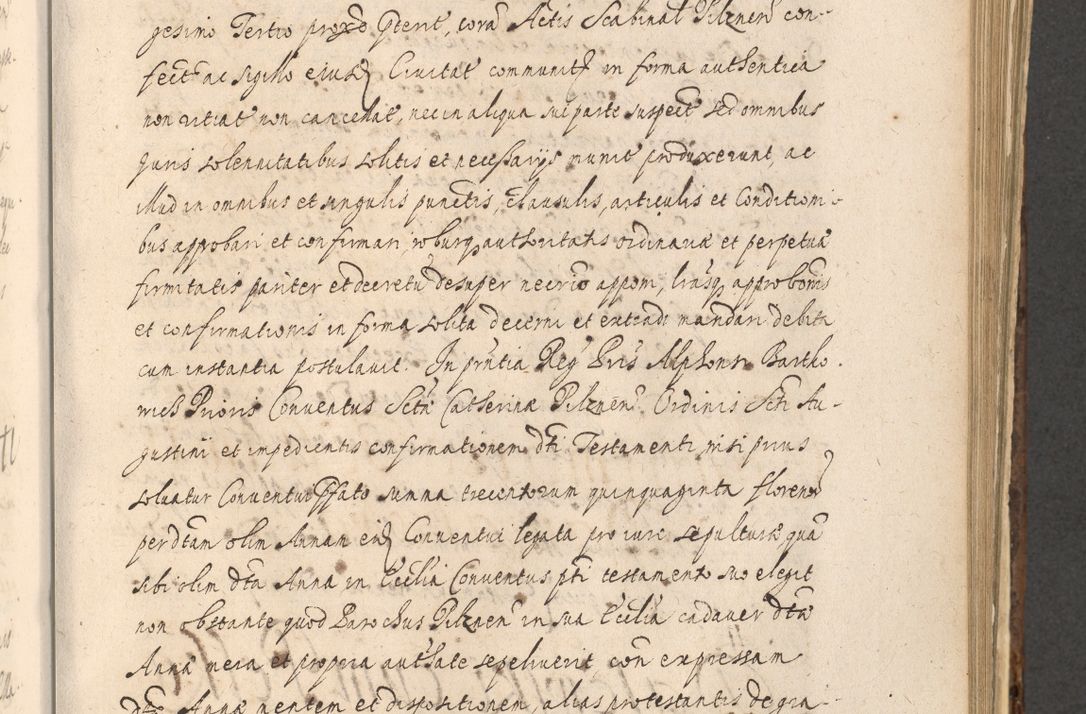 gesimo Tertio proxe pterit, cora Actis Scabinal Pilznen con-
fect ac sigillo eiusd Civitat communit in forma authentica
non vitiat non cancellat, nec in aliqua sui parte suspect sed omnibus
juris solennitatibus solitis et necessarijs munit produxerunt, ac
illud in omnibus et singulis punctis, clausulis, articulis et Conditioni-
bus approbari et confirmari, roburq authoritatis ordinariæ et perpetuæ
firmitatis pariter et decretu desuper necrio apponi, lrasq approbonis
et confirmationis in forma solita decerni et extradi mandari debita
cum instantia postulavit. In pntia Reg Pris Alphonsi Bartho.
wicz Prioris Conventus Sctæ Catherinæ Pilznen Ordinis Scti Au-
gustini et impedientis confirmationem dti Testamenti, nisi prius
solvatur Conventui pfato summa trecentorum quinquaginta floreno
per dtam olim Annam eid Conventui legata pro iure sepulturæ qua
sibi olim dta Anna in Ecclia Conventus pti testamento suo elegit
non obstante quod Parochus Pilznen in sua Ecclia cadaver dtæ
Annæ mera et propria authate sepeliverit con expressam
dtæ Annæ mentem et dispositionem, alias protestantis de gra-